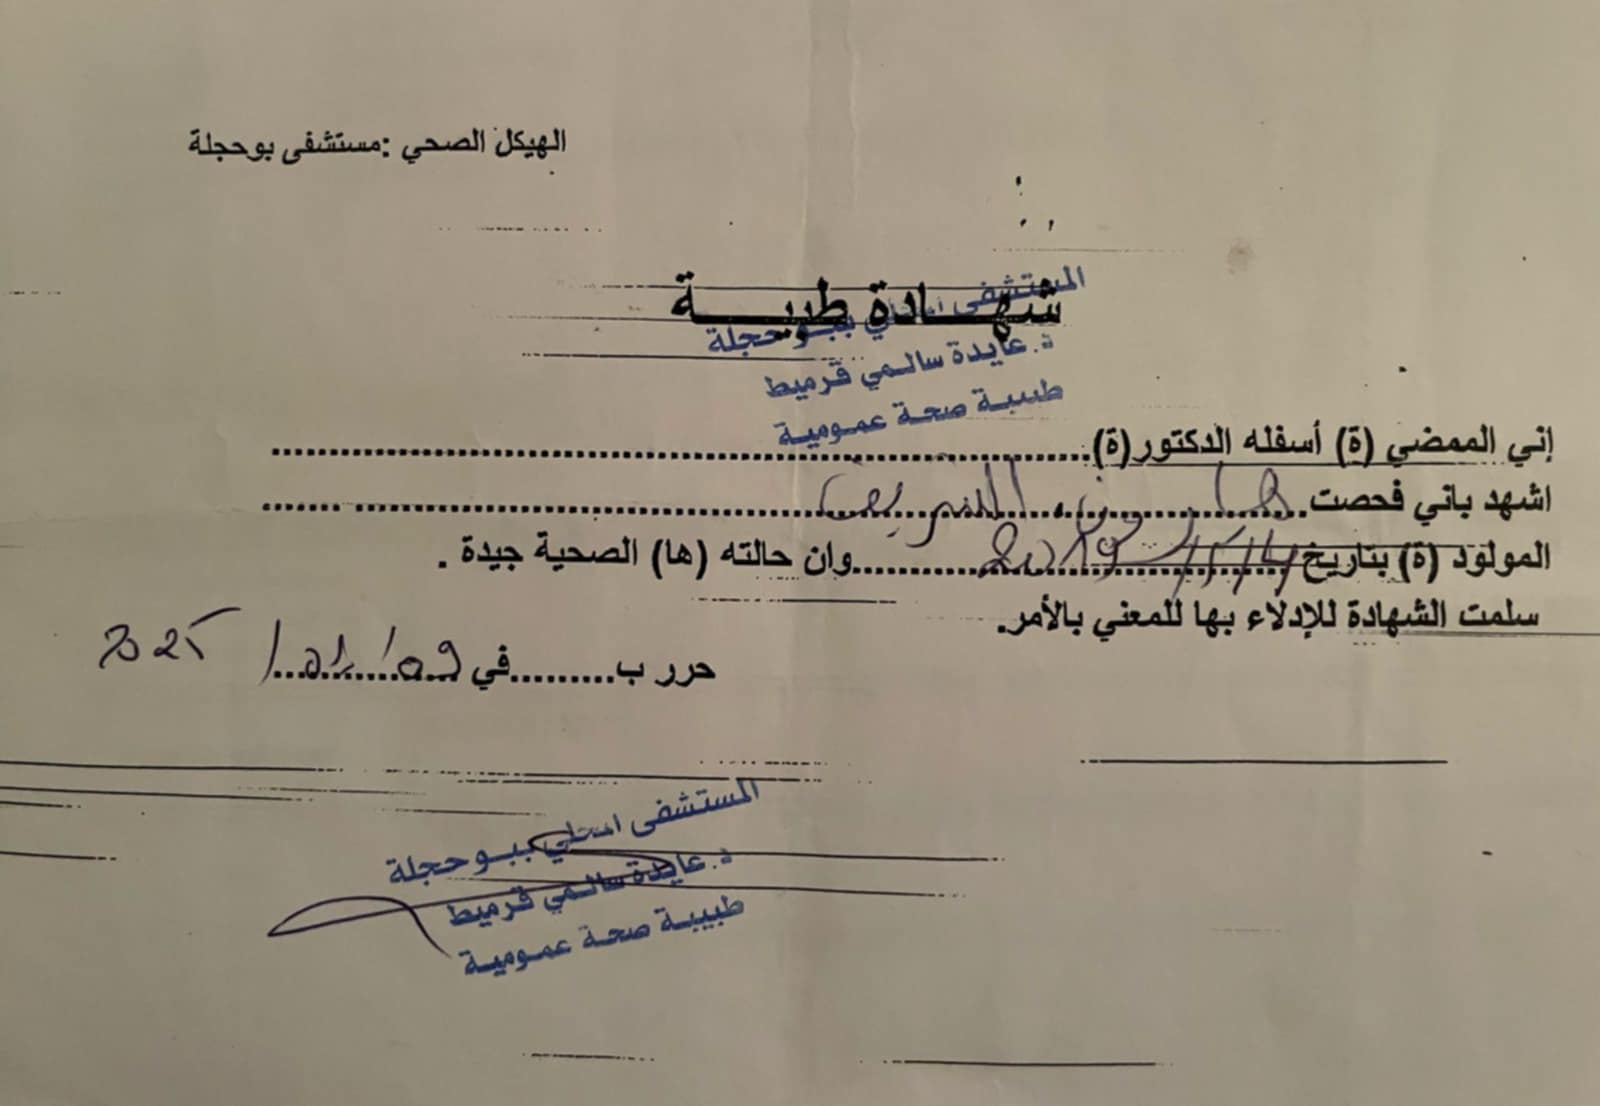 الهيكل الصحي :مستشفى بوحجلة
شهــــادة طبيــــــة
المستشفى المحلي ببــوحجلة
د.عايدة سالـمي قرميط
طبيبـة صحـة عمـوميـة
إني الممضي (ة) أسفله الدكتور(ة)
اشهد باني فحصت
المولود (ة) بتاريخ 2019 وان حالته (ها) الصحية جيدة .
سلمت الشهادة للإدلاء بها للمعني بالأمر.
حرر ب.........في 2025
المستشفى المحلي ببــوحجلة
د.عايدة سالـمي قرميط
طبيبـة صحـة عمـوميـة